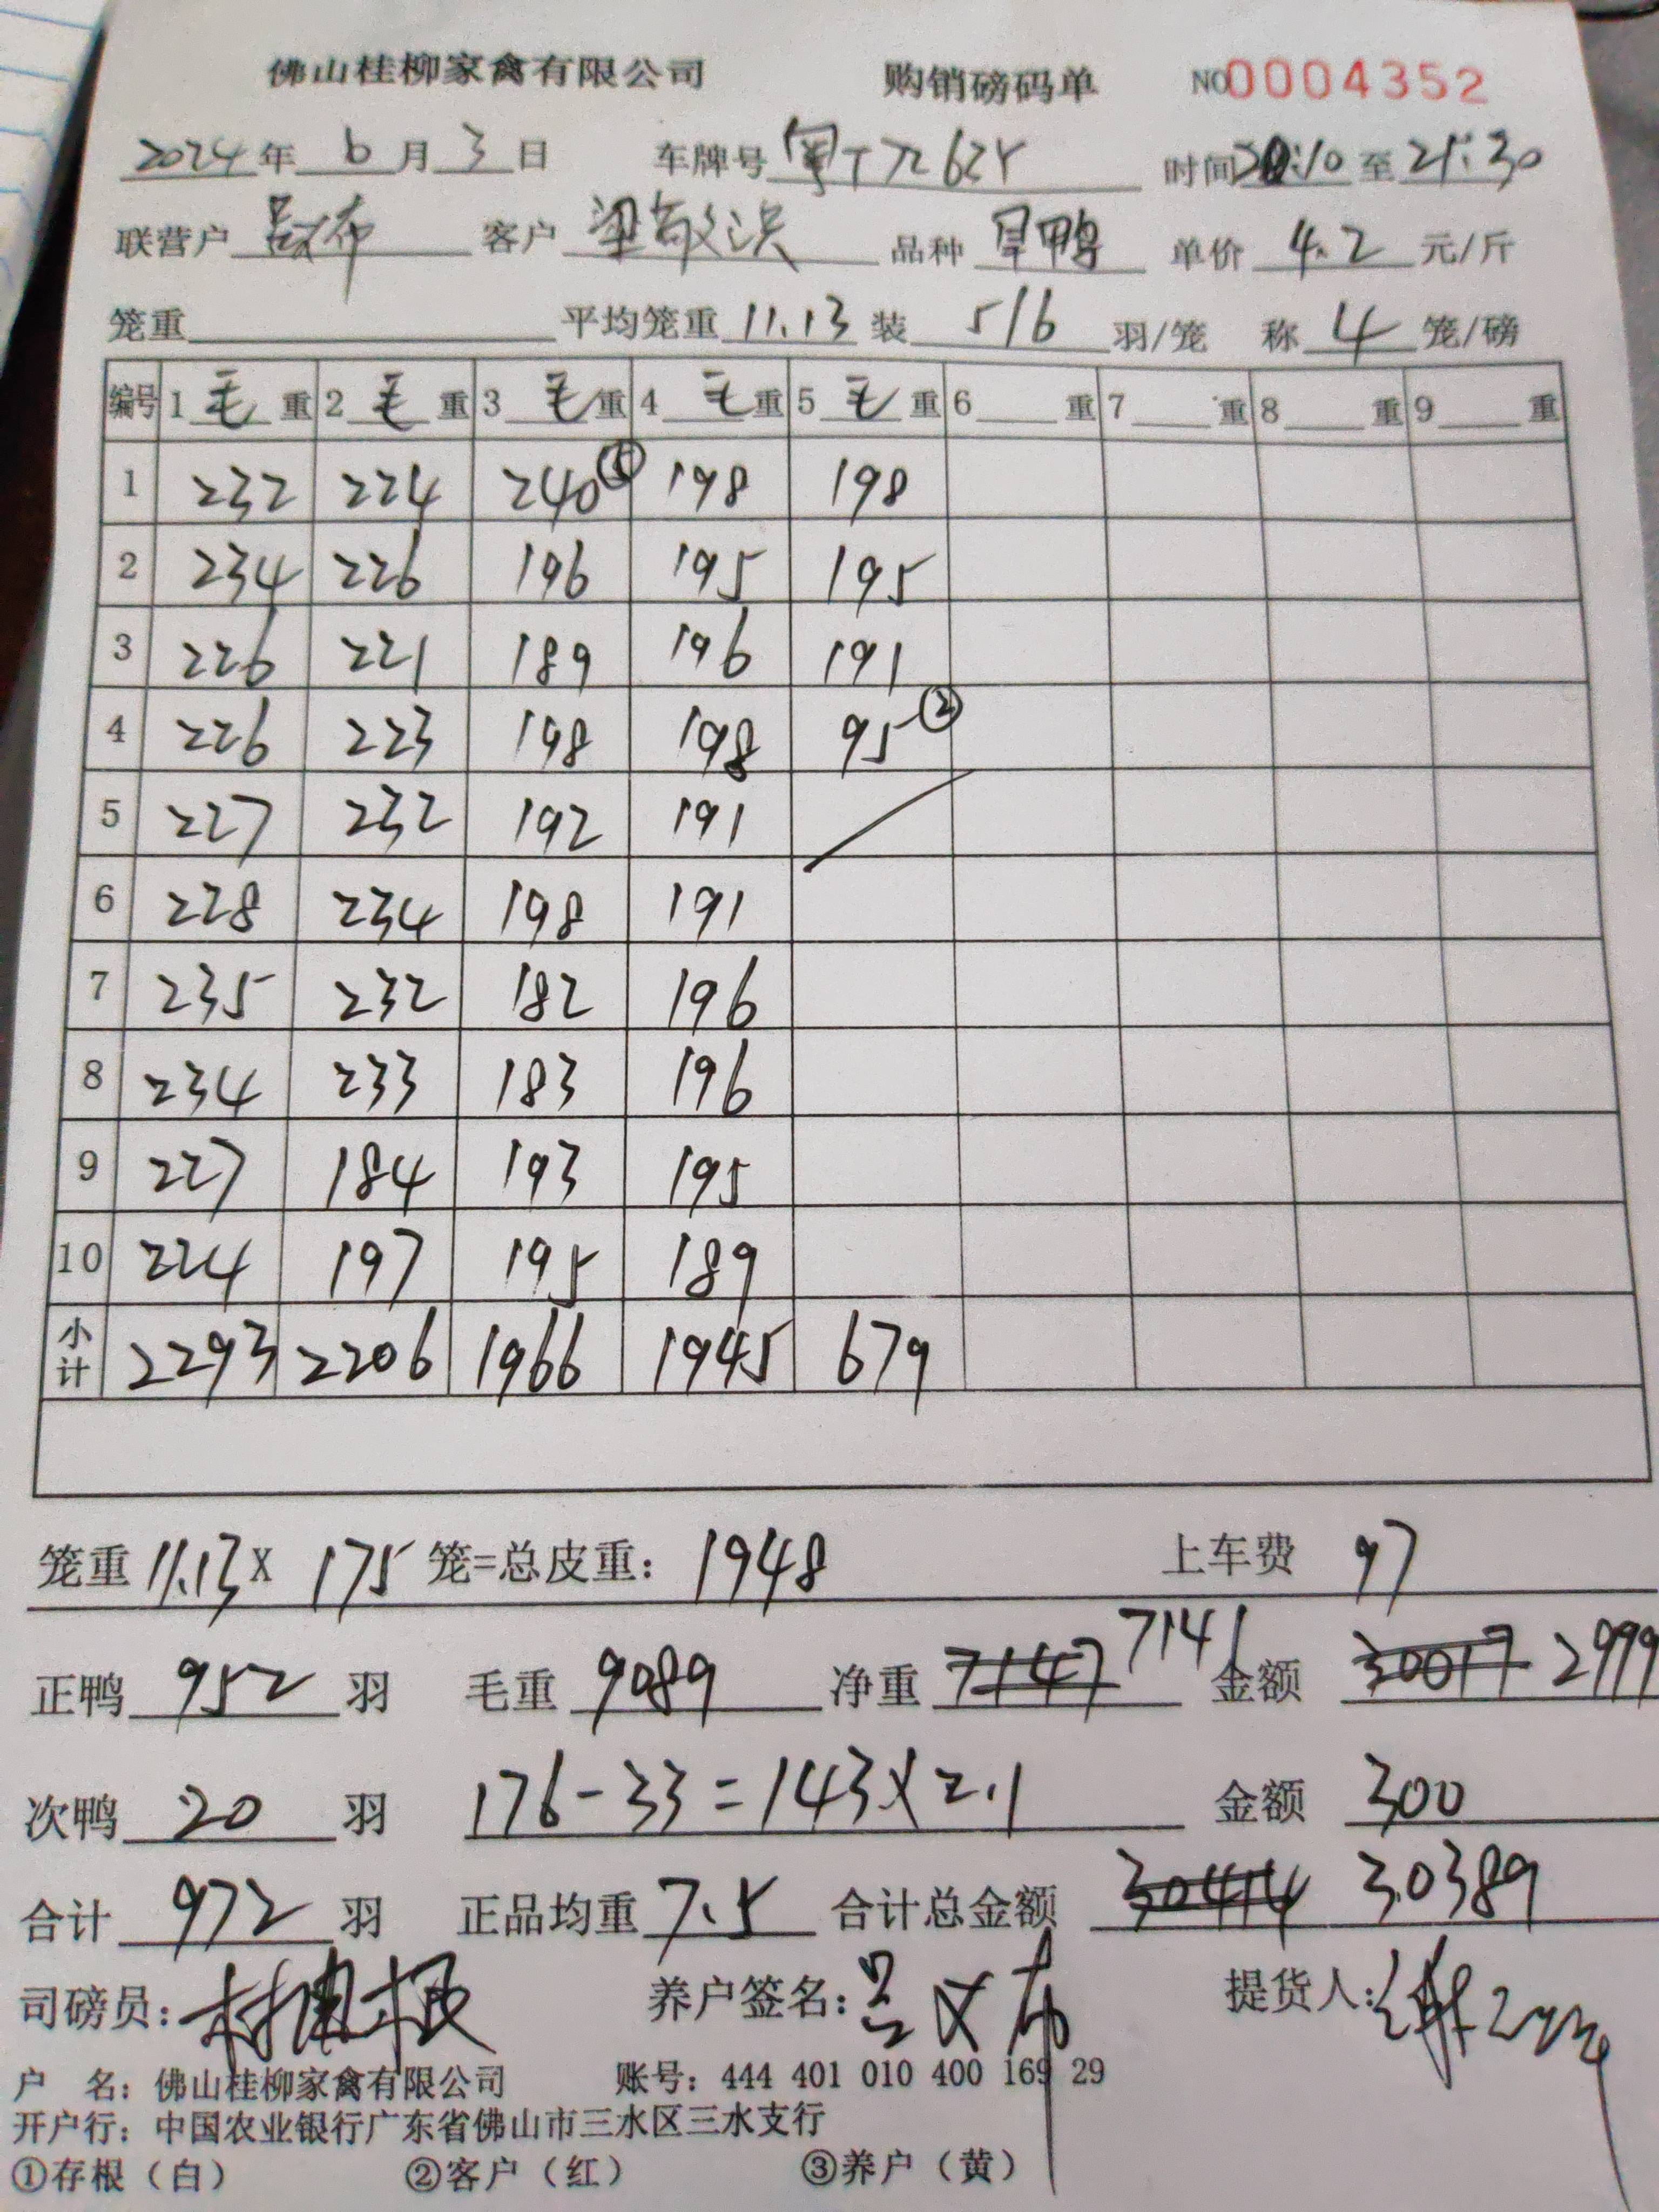 佛山桂柳家禽有限公司 购销磅码单 NO0004352
2024年 6月 3日 车牌号 624 时间 20:10 至 21:30
联营户 吕布 客户 梁敬洪 品种 旱鸭 单价 4.2 元/斤
笼重 平均笼重 11.13 装 5/6 羽/笼 称 4 笼/磅
编号 1 毛 重 2 毛 重 3 毛 重 4 毛 重 5 毛 重 6 重 7 重 8 重 9 重
1 232 224 240⑤ 198 198
2 234 226 196 195 195
3 226 221 189 196 191
4 226 223 198 198 95②
5 227 232 192 191
6 228 234 198 191
7 235 232 182 196
8 234 233 183 196
9 227 184 193 195
10 224 197 195 189
小计 2293 2206 1966 1945 679
笼重 11.13 X 175 笼=总皮重: 1948 上车费 97
正鸭 952 羽 毛重 9089 净重 7147 7141 金额 30017 2999
次鸭 20 羽 176-33=143X2.1 金额 300
合计 972 羽 正品均重 7.5 合计总金额 30414 30389
司磅员: 养户签名: 提货人:
户 名: 佛山桂柳家禽有限公司 账号: 444 401 010 400 169 29
开户行: 中国农业银行广东省佛山市三水区三水支行
①存根(白) ②客户(红) ③养户(黄)